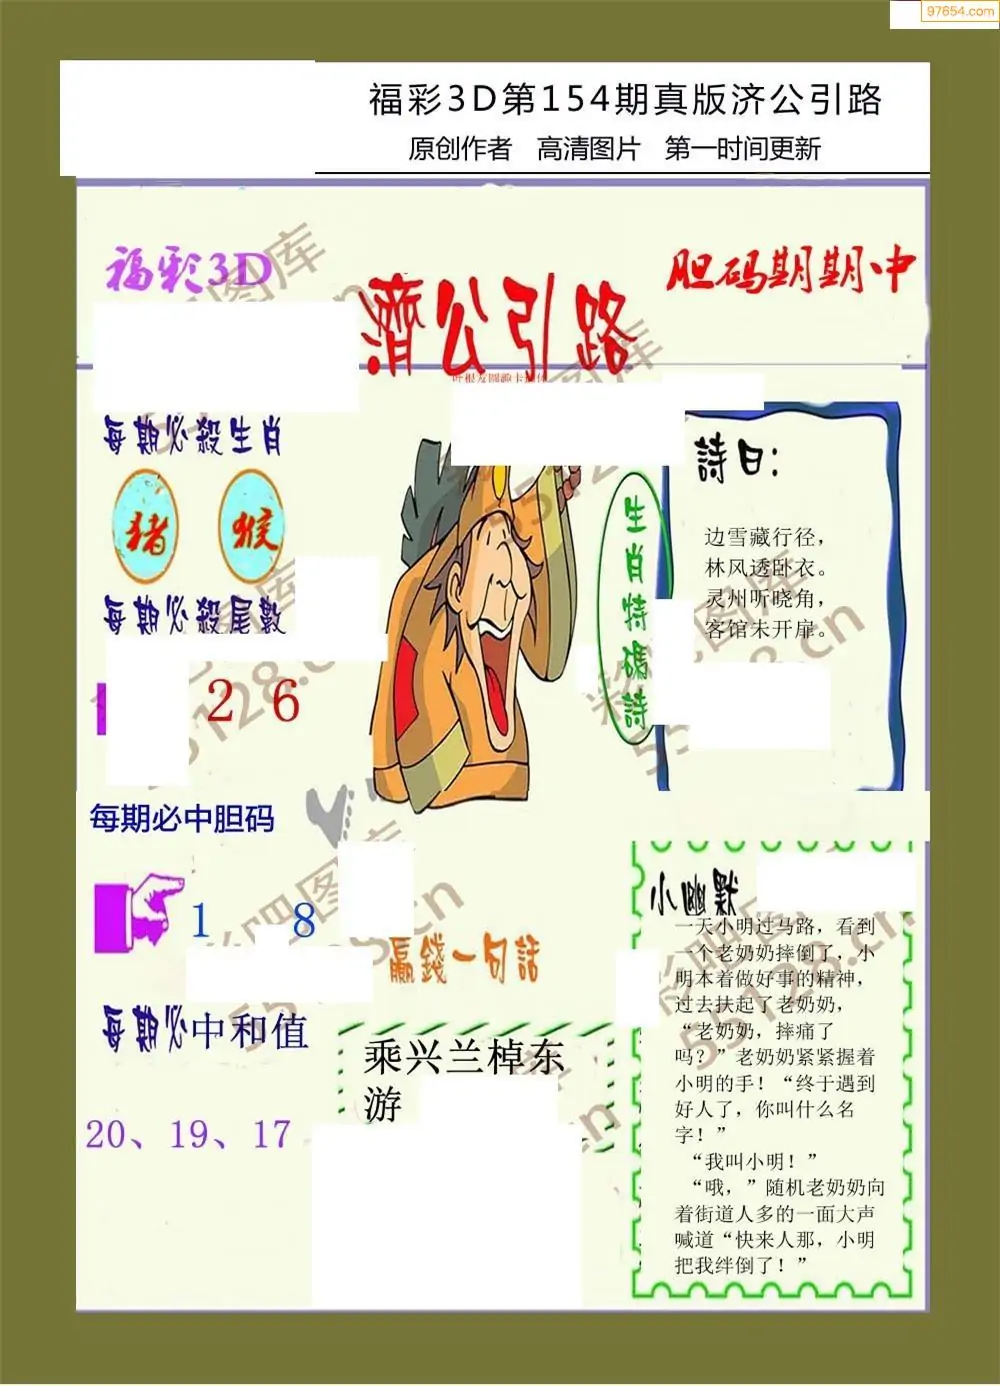 97654.com
福彩3D第154期真版济公引路
原创作者 高清图片 第一时间更新
福彩3D
濟公引路
胆码期期中
每期必殺生肖
猪 猴
每期必殺尾數
2 6
每期必中胆码
1 8
每期必中和值
20、19、17
生肖特碼詩
詩曰：
边雪藏行径，
林风透卧衣。
灵州听晓角，
客馆未开扉。
贏錢一句話
乘兴兰棹东
游
小幽默
一天小明过马路，看到
一个老奶奶摔倒了，小
明本着做好事的精神，
过去扶起了老奶奶，
“老奶奶，摔痛了
吗？”老奶奶紧紧握着
小明的手！“终于遇到
好人了，你叫什么名
字！”
“我叫小明！”
“哦，”随机老奶奶向
着街道人多的一面大声
喊道“快来人那，小明
把我绊倒了！”
彩吧图库
55128.cn